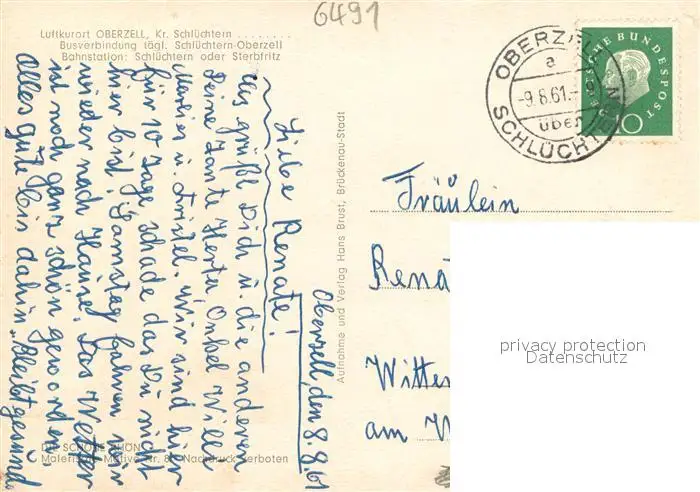 6491
Luftkurort OBERZELL, Kr. Schlüchtern ........
Busverbindung tägl. Schlüchtern-Oberzell
Bahnstation: Schlüchtern oder Sterbfritz
OBERZELL
a
-9.8.61.-
über
SCHLÜCHTERN
DEUTSCHE BUNDESPOST
10
Oberzell, den 8.8.61
Liebe Renate!
es grüßt Dich u. die anderen
Deine Tante Herta Onkel Willi
u. Wir sind hier
für 10 Tage schade das Du nicht
hier bist, Samstag fahren wir
wieder nach Hause. Das Wetter
ist noch ganz schön geworden.
alles gute bis dahin, bleibt gesund
Aufnahme und Verlag Hans Brust, Brückenau-Stadt
Fräulein
Rena
Witte
am W
privacy protection
Datenschutz
DIE SCHÖNE RHÖN
Malerische Motive Nr. 8 Nachdruck verboten